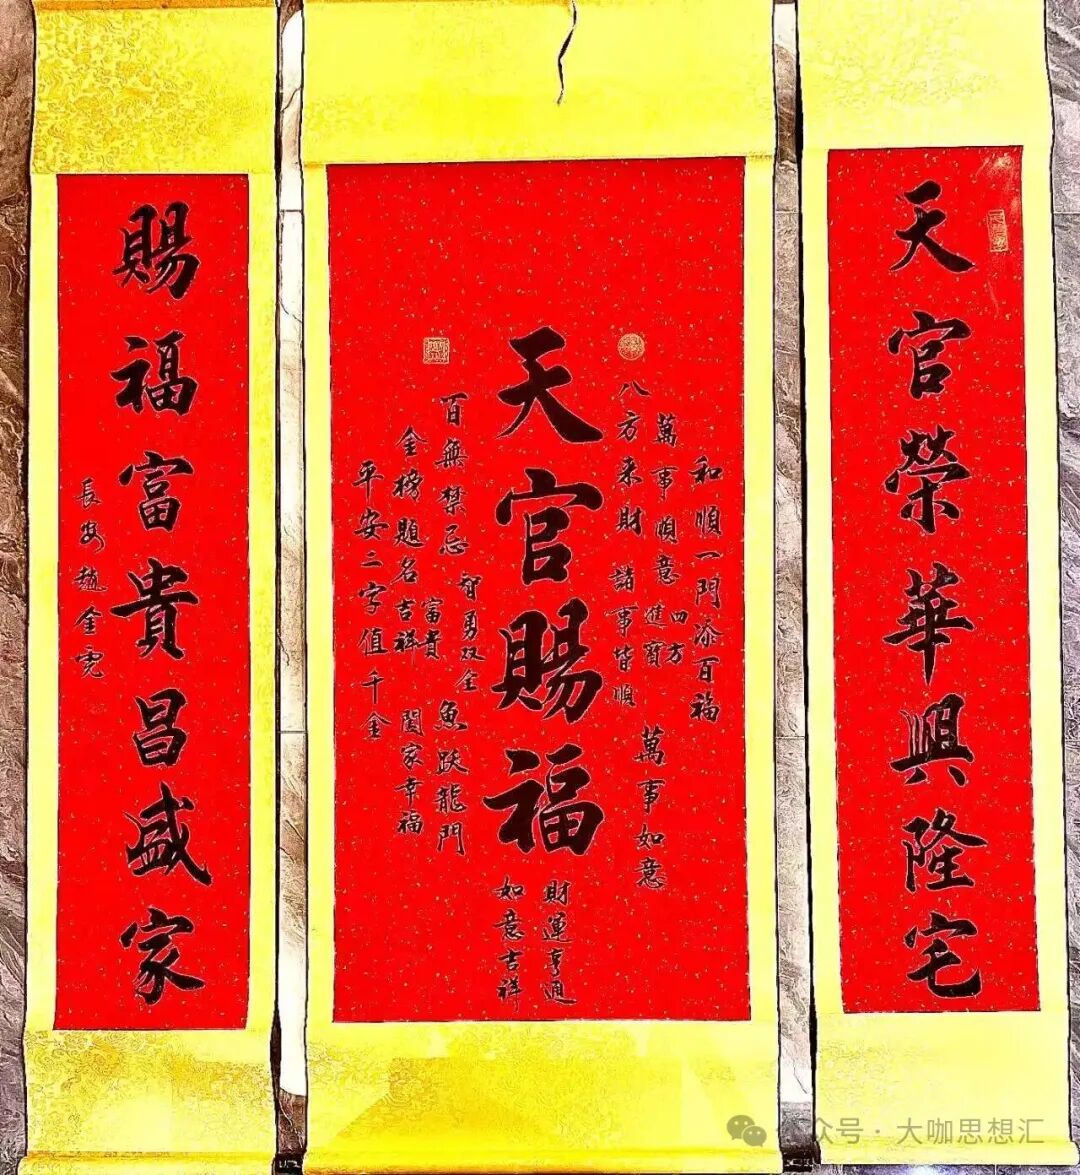 天官榮華興隆宅
和順一門添百福
萬事順意
四方
進寶
萬事如意
八方来財
諸事皆順
天官賜福
財運亨通
如意吉祥
百無禁忌
智勇双全
魚跃龍門
金榜題名
富貴
吉祥
閤家幸福
平安二字值千金
賜福富貴昌盛家
長安趙金
众号 · 大咖思想汇